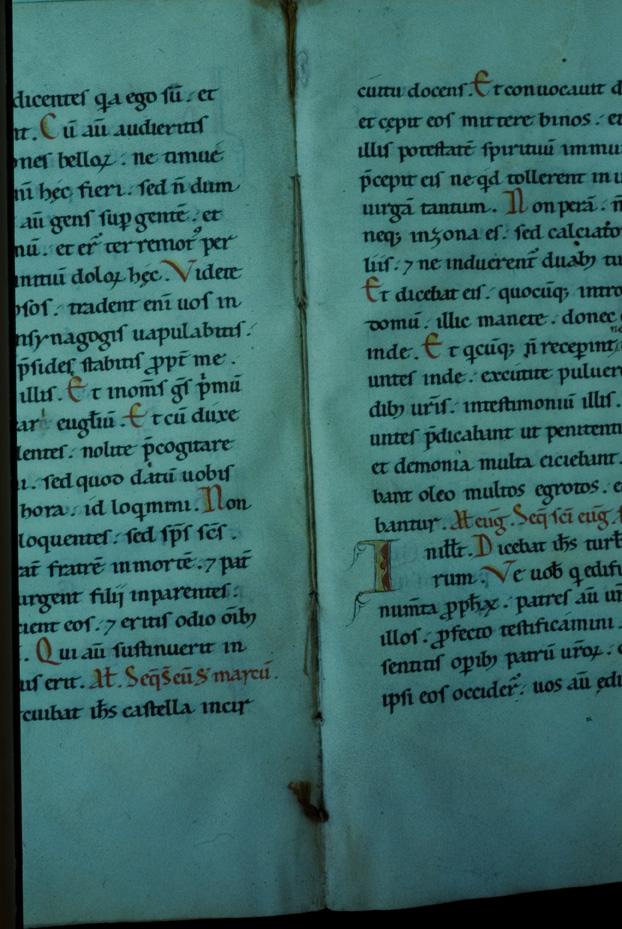 dicentes q̄a ego sū. et
nt. Cū aū audieritis
ones belloꝝ. ne timue
nī hęc fieri. sed ñ dum
aū gens sup gentē. et
nū. et er̄ terremot᷒ per
initiū doloꝝ hęc. Videte
psos. tradent enī uos in
nsynagogis uapulabitis.
p̄sides stabitis ꝓpt̄ me.
illis. Et inom̄s ḡs p̄mū
ari euḡliū. Et cū duxe
lentes. nolite p̄cogitare
i. sed quod datū uobis
hora. id loqmini. Non
loquentes. sed sp̄s sc̄s.
rat̄ fratrē in mortē. ⁊ pat̄
urgent filij inparentes.
cient eos. ⁊ eritis odio oīb;
. Qui aū sustinuerit in
uis erit. At. Seq̄ S eū S marcū.
rcuibat ih̄s castella incir
cuitu docens. Et conuocauit d
et cepit eos mittere binos. et
illis potestatē spirituū immu
p̄cepit eis ne qd tollerent in u
uirgā tantum. Non perā. ñ
neq; inzona es. sed calciatos
liis. ⁊ ne induerent᷒ duab; tu
Et dicebat eis. quocūq; intro
domū. illic manete. donec
inde. Et qcūq; ñ receperint
untes inde. excutite puluere
dib; ur̄is. intestimoniū illis.
untes p̄dicabant ut penitenti
et demonia multa eiciebant.
bant oleo multos egrotos. e
bantur. At euḡ. Seq̄ sc̄i euḡ. s
In illt̄. Dicebat ih̄s turb
rum. Ve uob̄ q edifi
numt̄a ꝓph̄aꝝ. patres aū ur
illos. ꝓfecto testificamini.
sentitis opib; patrū ur̄oꝝ.
ipsi eos occider̄. uos aū edi